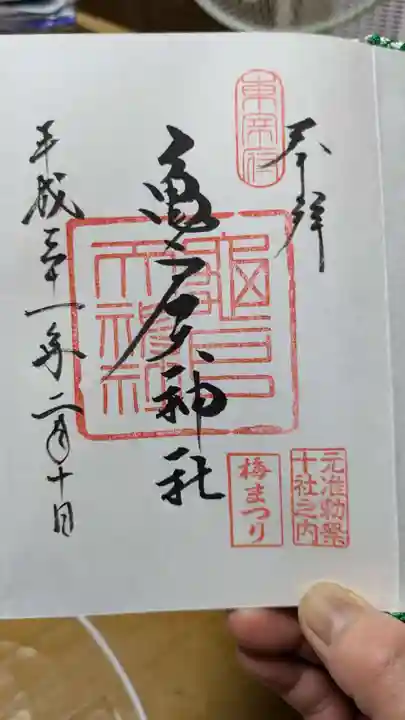 奉拝
東宰府
亀戸天神社
亀戸天神社
元准勅祭
十社之内
梅まつり
平成三十一年二月十日